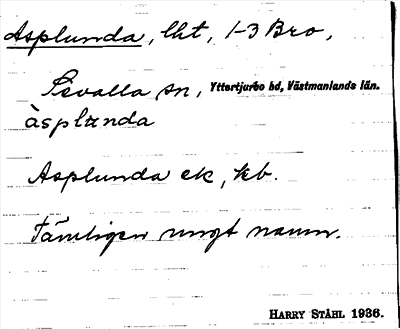 Asplunda, lht, 1-3 Bro,
Sevalla sn, Yttertjurbo hd, Västmanlands län.
àsplunda
Asplunda ek, kb.
Tämligen ungt namn.
HARRY STÅHL 1936.